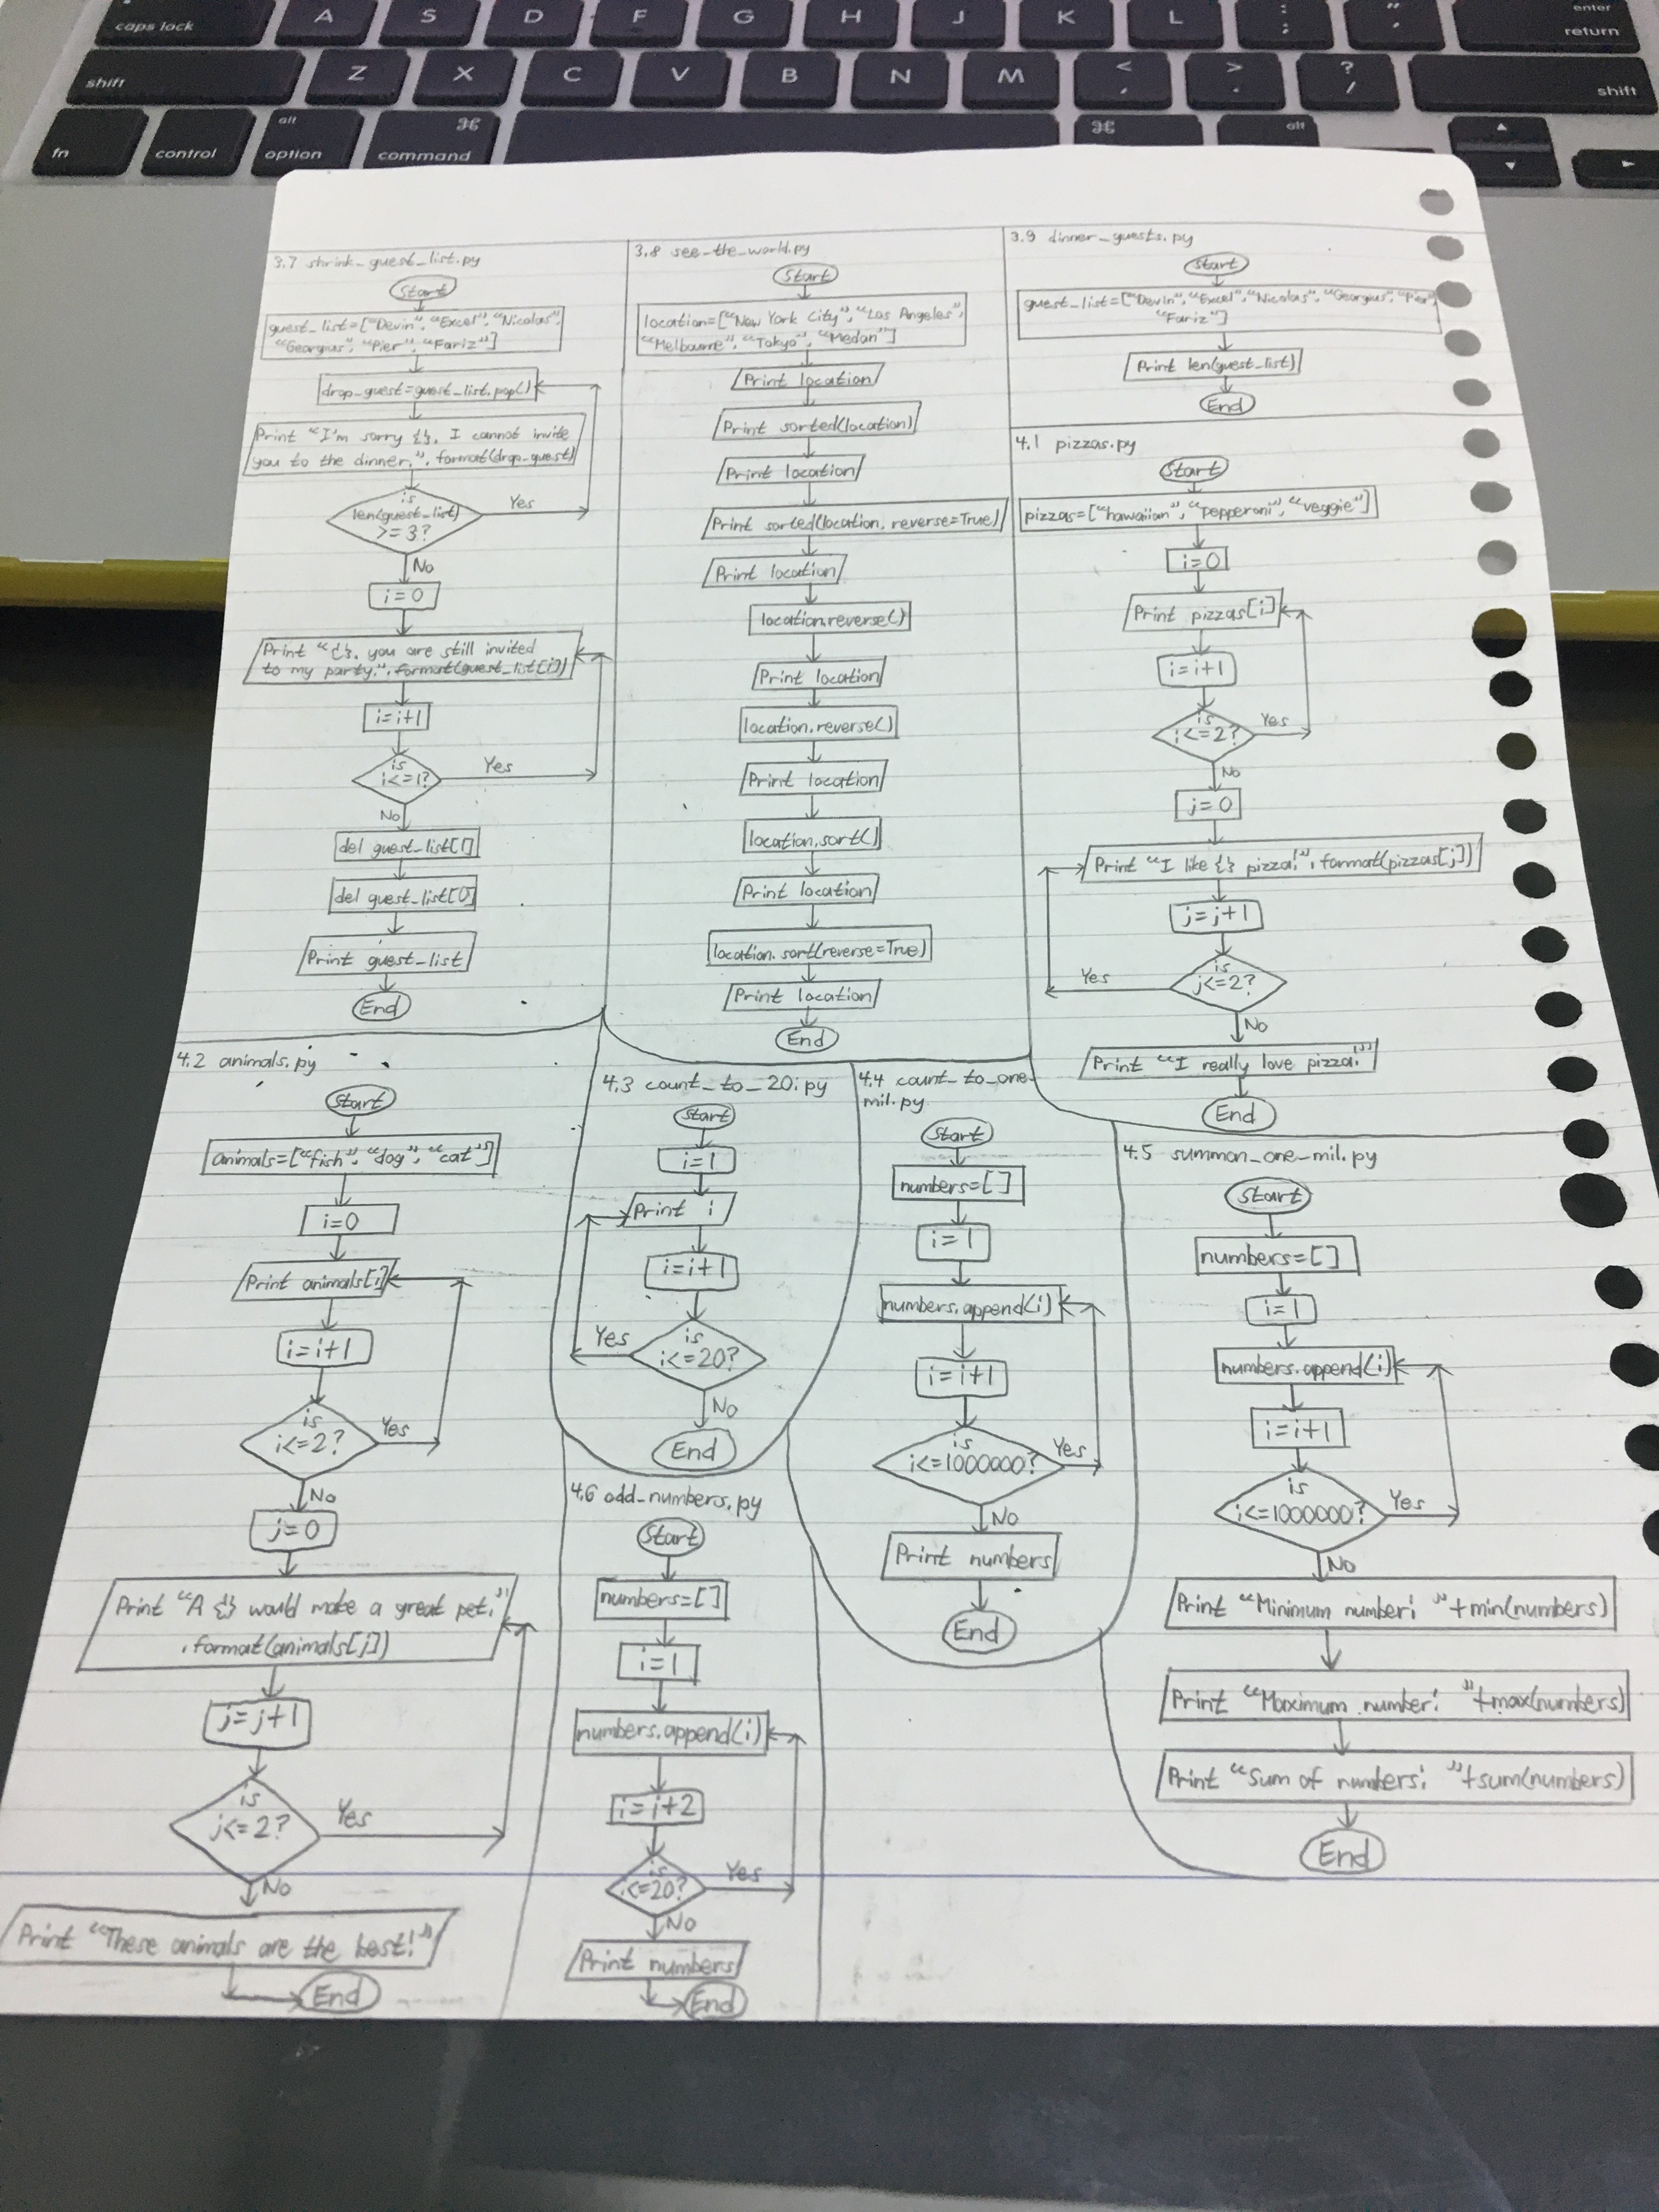 caps lock
A
S
D
F
G
H
J
K
L
:
;
"
'
enter
return
shift
Z
X
C
V
B
N
M
<
,
>
.
?
/
shift
fn
control
alt
option
⌘
command
⌘
alt
3.7 shrink_guest_list.py
Start
guest_list=["Devin","Excel","Nicolas",
"Georgius","Pier","Fariz"]
drop_guest=guest_list.pop()
Print "I'm sorry {}, I cannot invite
you to the dinner.".format(drop_guest)
is
len(guest_list)
>=3?
Yes
No
i=0
Print "{}, you are still invited
to my party.".format(guest_list[i])
i=i+1
is
i<=1?
Yes
No
del guest_list[1]
del guest_list[0]
Print guest_list
End
3.8 see_the_world.py
Start
location=["New York City","Los Angeles",
"Melbourne","Tokyo","Medan"]
Print location
Print sorted(location)
Print location
Print sorted(location, reverse=True)
Print location
location.reverse()
Print location
location.reverse()
Print location
location.sort()
Print location
location.sort(reverse=True)
Print location
End
3.9 dinner_guests.py
Start
guest_list=["Devin","Excel","Nicolas","Georgius","Pier",
"Fariz"]
Print len(guest_list)
End
4.1 pizzas.py
Start
pizzas=["hawaiian","pepperoni","veggie"]
i=0
Print pizzas[i]
i=i+1
is
i<=2?
Yes
No
j=0
Print "I like {} pizza!".format(pizzas[j])
j=j+1
is
j<=2?
Yes
No
Print "I really love pizza!"
End
4.2 animals.py
Start
animals=["fish","dog","cat"]
i=0
Print animals[i]
i=i+1
is
i<=2?
Yes
No
j=0
Print "A {} would make a great pet."
.format(animals[j])
j=j+1
is
j<=2?
Yes
No
Print "These animals are the best!"
End
4.3 count_to_20.py
Start
i=1
Print i
i=i+1
is
i<=20?
Yes
No
End
4.4 count_to_one-
mil.py
Start
numbers=[]
i=1
numbers.append(i)
i=i+1
is
i<=1000000?
Yes
No
Print numbers
End
4.5 summon_one_mil.py
Start
numbers=[]
i=1
numbers.append(i)
i=i+1
is
i<=1000000?
Yes
No
Print "Minimum number: "+min(numbers)
Print "Maximum number: "+max(numbers)
Print "Sum of numbers: "+sum(numbers)
End
4.6 odd_numbers.py
Start
numbers=[]
i=1
numbers.append(i)
i=i+2
is
i<=20?
Yes
No
Print numbers
End